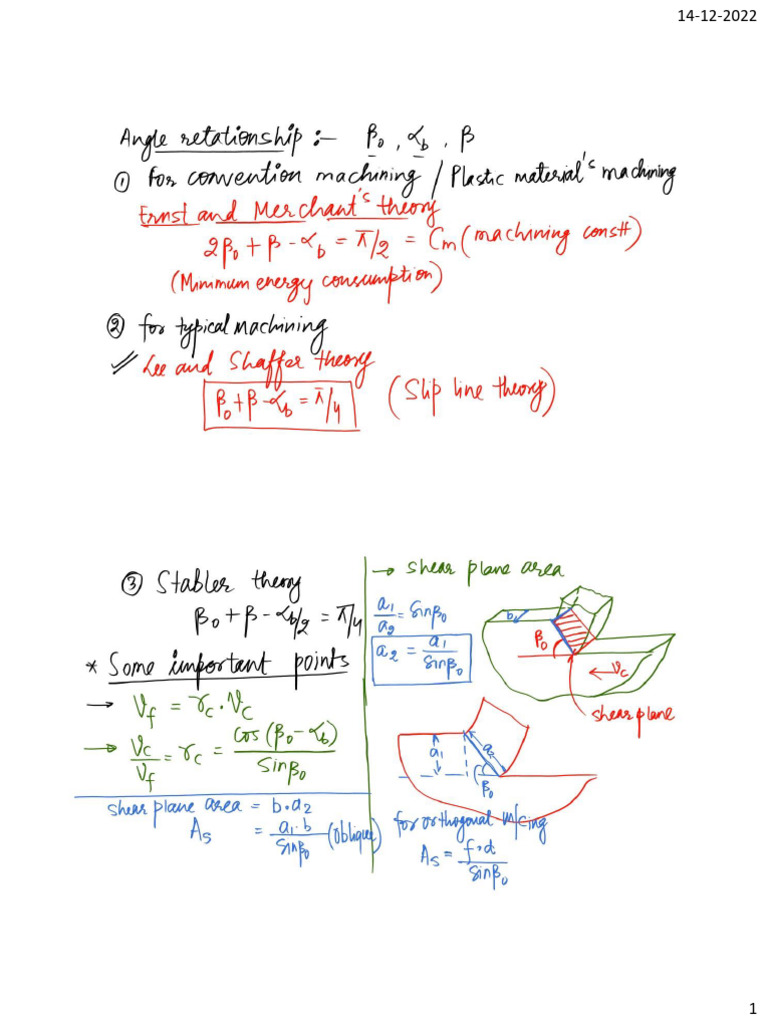 14-12-2022
Angle relationship :- β₀, αb, β
① for convention machining / Plastic material's machining
Ernst and Merchant's theory
2β₀ + β - αb = π/2 = Cm (machining constt)
(Minimum energy consumption)
② for typical machining
Lee and Shaffer theory
β₀ + β - αb = π/4 (Slip line theory)
③ Stabler theory
β₀ + β - αb/2 = π/4
* Some important points
→ Vf = rc . Vc
→ Vc/Vf = rc = cos(β₀ - αb)/sinβ₀
shear plane area = b.a₂
As = a₁.b/sinβ₀ (oblique)
→ shear plane area
a₁/a₂ = sinβ₀
a₂ = a₁/sinβ₀
b
β₀
Vc
shear plane
a₁
a₂
β₀
for orthogonal m/cing
As = f.d/sinβ₀
1